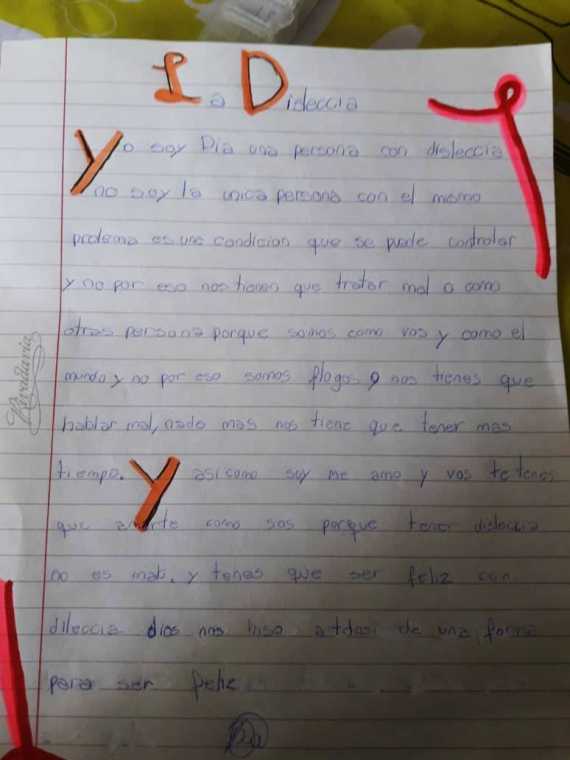 La Dideccia
Yo soy Pia una persona con disleccia
y no soy la unica persona con el mismo
problema es una condicion que se puede controlar
y no por eso nos tienen que tratar mal o como
otras persona porque somos como vos y como el
mundo y no por eso somos flogos o nos tienes que
hablar mal, nado mas nos tiene que tener mas
tiempo. Y asi como soy me amo y vos te tenes
que amarte como sos porque tener disleccia
no es malo, y tenes que ser feliz con
dileccia dios nos hiso a de una forma
para ser feliz
Rivadavia